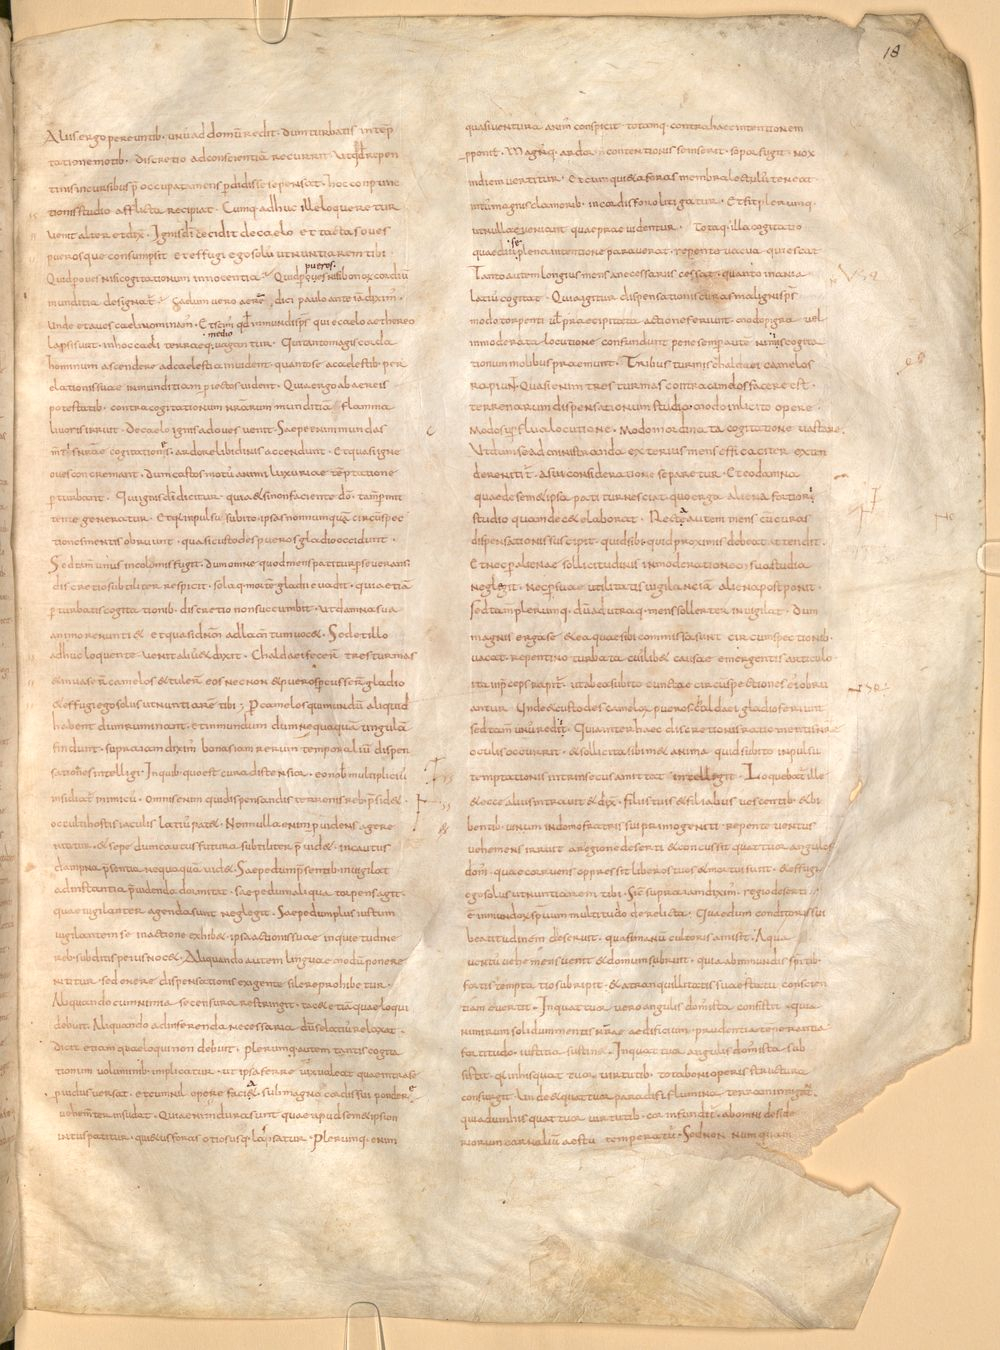 18
Aliis ergo pereuntib· unus ad domū redit· dum turbatis in temp
tatione motib· discretio ad conscientiā recurrit· Ut qd repen
tinis incursibus p̄occupata mens pdidisse se pensat· hoc conpunc
tionis studio afflicta recipiat· Cumq· adhuc ille loqueretur
venit alter et dix̄· Ignis dī cecidit de caelo et tactas oves
puerosque consumpsit et effugi ego solus ut nuntiarem tibi·
Quid p oves nisi cogitationum innocentia· Quid p pueros nisi bonorū cordiū
munditia designat̄· caelum vero aerem dici paulo ante iā dixim̄·
Unde et aves caeli nominam̄· Et scim̄ qd inmundi sp̄s qui e caelo aethereo
lapsi sunt· in hoc caeli terraeq· medio vagantur· Qui tanto magis corda
hominum ascendere ad caelestia invident· quanto se a caelestib· per
elationis suae inmunditiam piectos vident· Quia ergo ab aereis
potestatib· contra cogitationum nr̄arum munditiā flamma
livoris irruit· De caelo ignis ad oves venit· Saepe enim mundas
m̄tis nr̄ae cogitationes ardore libidinis accendunt· Et quasi igne
oves concremant· dum castos motus animi luxuriae temptatione
pturbant· Qui ignis dī dicitur· quia & si non faciente dō· tam pmit
tente generatur· Et quia impulsu subito ipsas nonnumquā circūspec
tiones mentis obruunt· quasi custodes pueros gladio occidunt·
Sed tam unus incolomis fugit· dum omne quod mens patitur pseverans
discretio subtiliter respicit· solaq· mortē gladii evadit· quia etiā
pturbatis cogitationib· discretio non succumbit· ut damna sua
animo renunti& et quasi dn̄m ad lam̄tum voc&· Sed et illo
adhuc loquente· venit alius & dixit· Chaldaei fecer̄ tres turmas
& invaser̄ camelos & tuler̄ eos nec non & pueros pcusser̄ gladio
& effugi ego solus ut nuntiarē tibi; P camelos qui mundū aliquid
habent dum ruminant· et inmundum dum nequaquā ungulā
findunt· supra iam dixim̄ bonas iam rerum temporaliū dispen
sationes intelligi· In quib· quo est cura distensior· eo nob multiplicius
insidiat̄ inimicus· Omnis enim qui dispensandis terrenis reb· p̄sid&·
occulti hostis iaculis latius pat&· Nonnulla enim p̄videns agere
nititur· & sepe dum cautus futura subtiliter p̄vid&· incautus
damna p̄sentia nequaquā vid&· Saepe dum p̄sentib· invigilat
ad instantia p̄videnda dormitat· saepe dum aliqua torpens agit·
quae vigilanter agenda sunt neglegit· Saepe dum plus iustum
vigilantem se in actione exhib&· ipsa actionis suae inquietudine
reb· subditis peius noc&· Aliquando autem linguae modū ponere
nititur· sed onere dispensationis exigente silere prohibetur·
Aliquando cum nimia se censura restringit· tac& etiā quae loqui
debuit· Aliquando ad inferenda necessaria dū se latius relaxat·
dicit etiam quae loqui non debuit· Plerumq· autem tantis cogita
tionum voluminib· implicatur· ut ipsa ferre vix valeat quae intra se
pvidus versat· et cum nil opere faciat· sub magno cordis sui pondere
vehem̄ter insudat· Quia enim dura sunt quae apud semet ipsum
intus patitur· quietus foras otiosusq· lassatur· Plerumq· enim
quasi ventura anim̄ conspicit· totamq· contra haec intentionem
pponit· Magnusq· ardor contentionis se inserit· sopor fugit· nox
in diem vertitur· Et cum quieta foras membra lectulus teneat·
intus magnis clamorib· in cordis foro litigatur· Et fit plerumq·
ut nulla eveniant quae praevidentur· Totaq· illa cogitatio
quae diu se plena intentione paraverat· repente vacua quiescat
Tanto autem longius mens a necessariis cessat· quanto inania
latius cogitat· Quia igitur dispensationis curas maligni sp̄s
modo torpenti ul praecipitata actione feriunt· modo pigra vel
inmoderata locutione confundunt· pene semp autē nimiis cogita
tionum molibus praemunt· Tribus turmis chaldaei camelos
rapiunt· Quasi enim tres turmas contra camelos facere est·
terrenarum dispensationum studia· modo inlicito opere·
modo supflua locutione· modo inordinata cogitatione vastare·
Ut dum se ad ministranda exterius mens efficaciter exten
dere nitit̄· a sui consideratione separetur· Et eo damna
quae de semetipsa patitur nesciat quo erga aliena fortiori
studio quam decet elaborat· Recta autem mens cū curas
dispensationis suscipit· quid sibi· quid proximis debeat attendit·
Et nec p alienae sollicitudinis inmoderatione sua studia
neglegit· Nec p suae utilitatis vigilanciā aliena postponit·
sed tam̄ plerumq· dū ad utraq· mens sollerter invigilat· dum
magnis erga se & ea quae sibi commissa sunt circumspectionib·
vacat· repentino turbata cuiuslib& causae emergentis articulo
ita in p̄ceps rapit̄· ut ab ea subito cunctae circūspectiones eius obru
antur· Unde & custodes camelor̄ pueros chaldaei gladio feriunt
sed tam̄ unus redit· Quia inter haec discretionis ratio mentis n̄rae
oculis occurrit· & sollicita sibimet anima quid subito inpulsu
temptationis intrinsecus amittat intellegit· Loquebat̄ ille
& ecce alius intravit & dix̄· filiis tuis & filiabus vescentib· & bi
bentib· vinum in domo fratris sui primogeniti· repente ventus
vehemens irruit a regione deserti & concussit quattuor angulos
dom̄· quae corruens oppressit liberos tuos & mortui sunt· & effugi
ego solus ut nuntiarem tibi· Sicut supra iam dixim̄· regio deserti·
ē inmundorum sp̄uum multitudo derelicta· Quae dum conditoris sui
beatitudinem deseruit· quasi manū cultoris amisit· A qua
ventus vehemens venit & domum subruit· quia ab inmundis sp̄itib·
fortis temptatio subripit· & a tranquillitatis suae statu conscien
tiam evertit· In quattuor vero angulis domus ista consistit· quia
nimirum solidum mentis nr̄ae aedificium· prudentia· temperantia
fortitudo· iustitia sustin&· In quattuor angulis domus ista sub
sistit· quia in his quattuor virtutib· tota boni operis structura
consurgit· Unde & quattuor paradisi flumina terram inrigant·
quia dum his quattuor virtutib· cor infundit̄· ab omni deside
riorum carnalium aestu temperatur· Sed non numquam